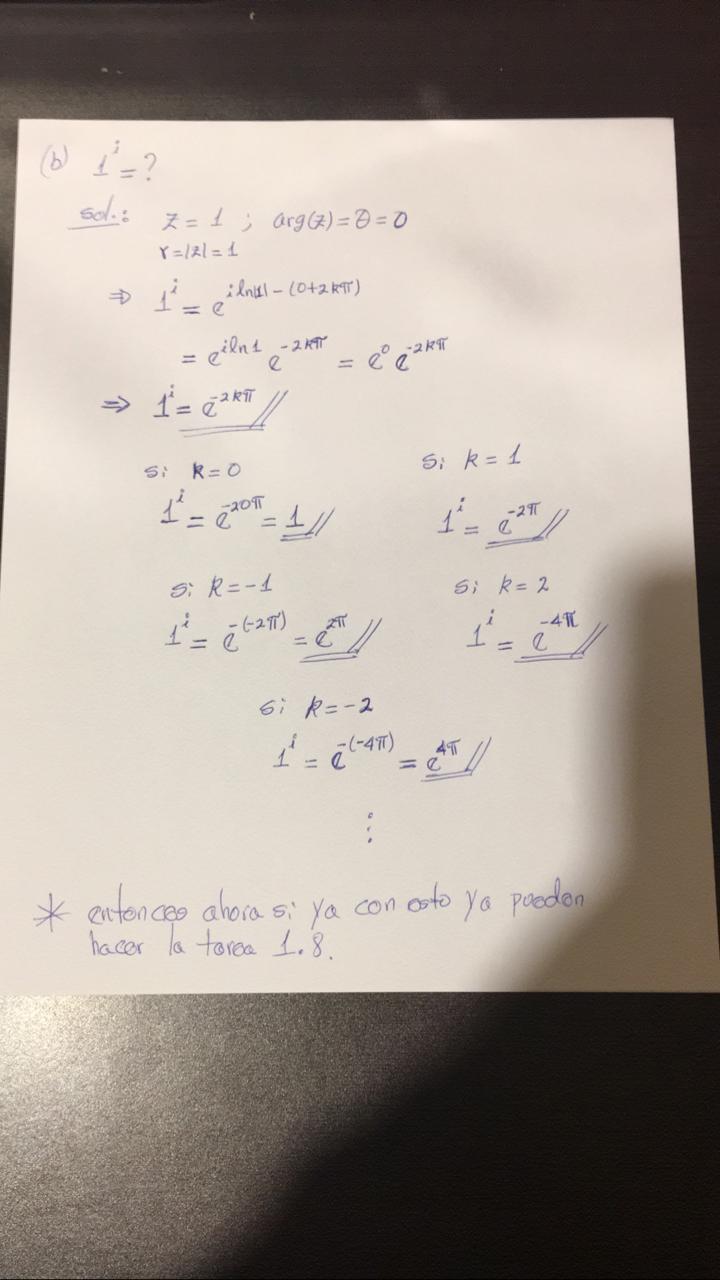 (b) 1^i = ?
sol.: z = 1 ; arg(z) = θ = 0
r = |z| = 1
⇒ 1^i = e^{i ln|1| - (0+2kπ)}
= e^{i ln1} e^{-2kπ} = e^0 e^{-2kπ}
⇒ 1^i = e^{-2kπ} //
si k = 0 si k = 1
1^i = e^{-20π} = 1 // 1^i = e^{-2π} //
si k = -1 si k = 2
1^i = e^{-(-2π)} = e^{2π} // 1^i = e^{-4π} //
si k = -2
1^i = e^{-(-4π)} = e^{4π} //
⋮
* entonces ahora si ya con esto ya pueden
hacer la tarea 1.8.